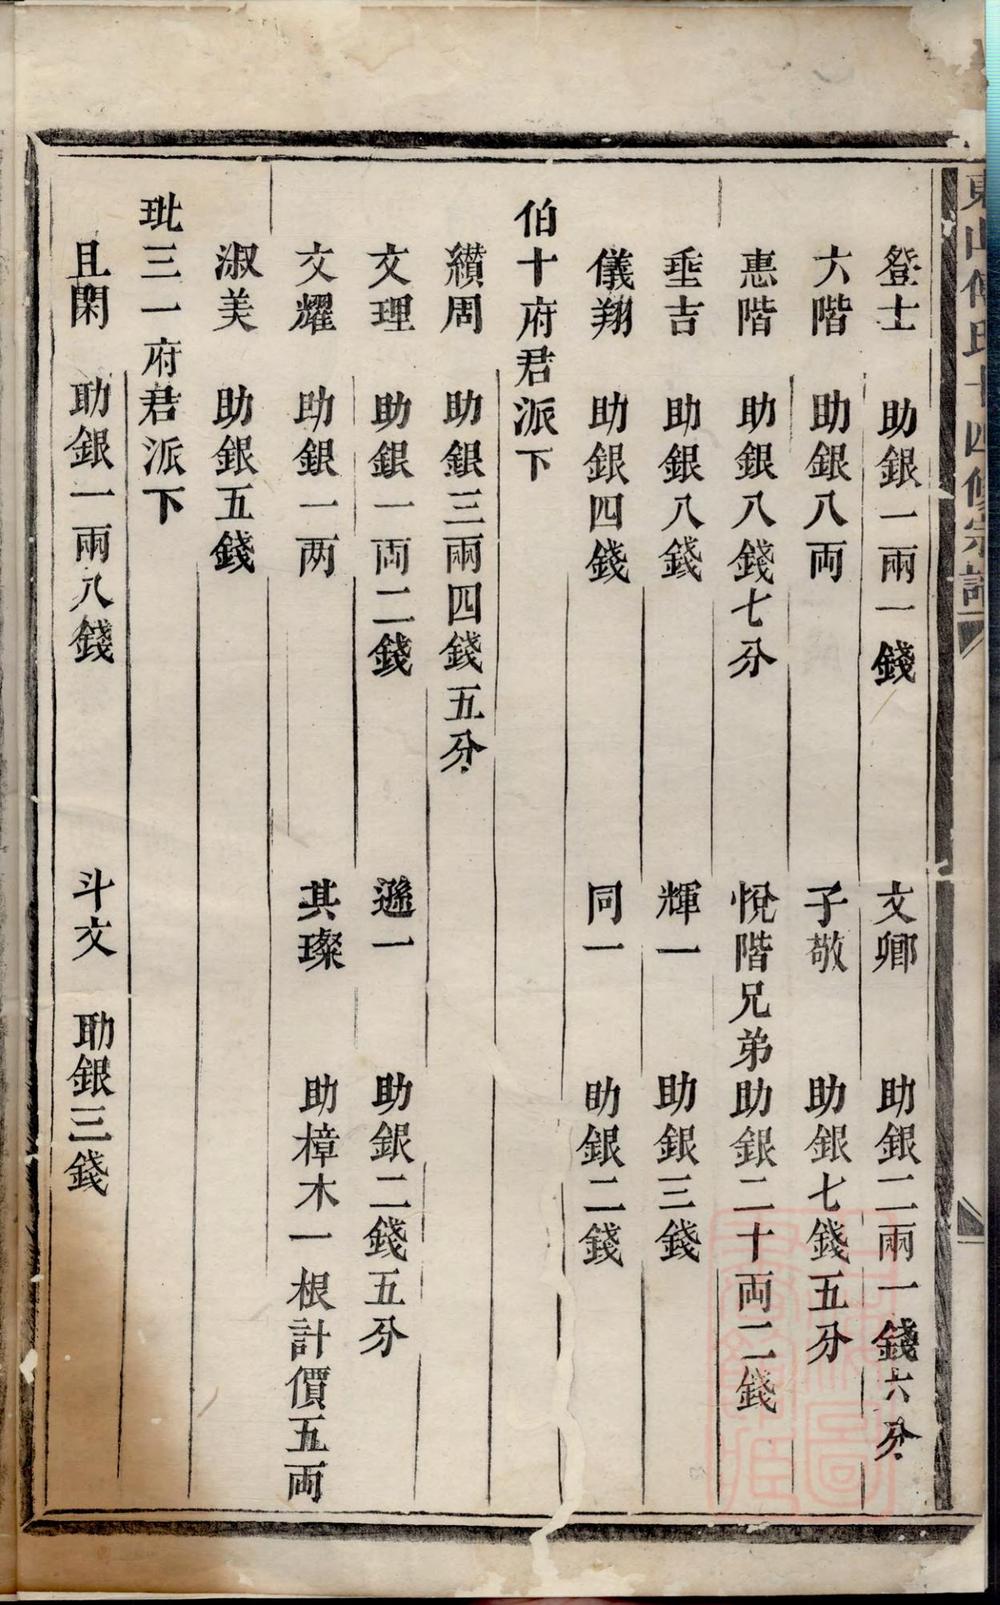 登士　助銀一兩一錢　文卿　助銀二兩一錢六分
六階　助銀八両　子敬　助銀七錢五分
惠階　助銀八錢七分　悅階兄弟　助銀二十両二錢
垂吉　助銀八錢　輝一　助銀三錢
儀翔　助銀四錢　同一　助銀二錢
伯十府君派下
纘周　助銀三兩四錢五分
文理　助銀一両二錢　遜一　助銀二錢五分
文耀　助銀一两　其璨　助樟木一根計價五両
淑美　助銀五錢
玭三一府君派下
且閑　助銀一兩八錢　斗文　助銀三錢